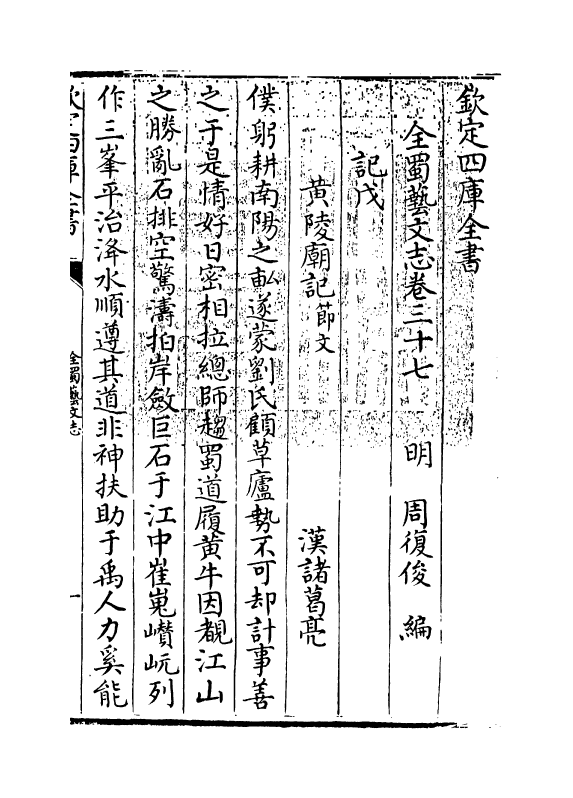 欽定四庫全書
全蜀藝文志卷三十七　明　周復俊　編
記戊
黄陵廟記節文　漢諸葛亮
僕躬耕南陽之畝遂蒙劉氏顧草廬勢不可却計事善
之于是情好日密相拉總師趨蜀道履黄牛因覩江山
之勝亂石排空驚濤拍岸斂巨石于江中崔嵬巑岏列
作三峯平治洚水順遵其道非神扶助于禹人力奚能
欽定四庫全書
全蜀藝文志
一